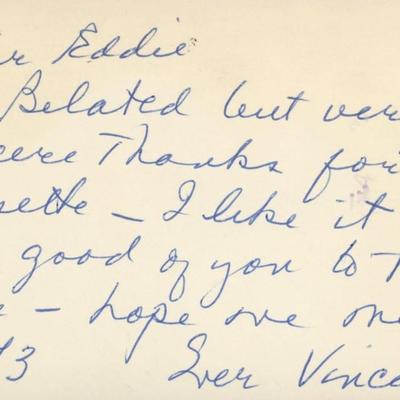 r Eddie
Belated but ver
cere Thanks for
sette – I like it
good of you to t
e – hope we me
73 Ever Vince